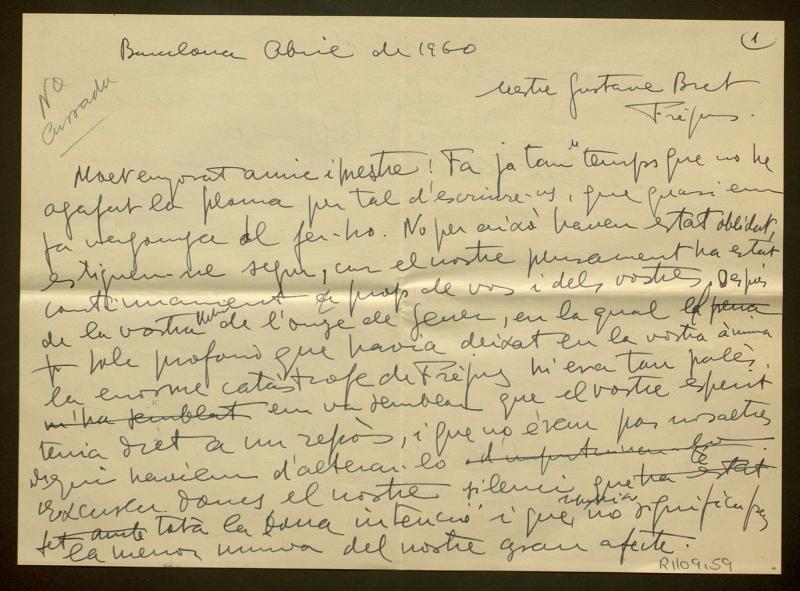 1
Barcelona Abril de 1960
No
cursada
Mestre Gustave Bret
Fréjus.
Molt enyorat amic i mestre! Fa ja tan temps que no he
agafat la ploma per tal d'escriure-us, que quasi em
fa vergonya el fer-ho. No per això haveu estat oblidat,
estigueu-ne segur, car el nostre pensament ha estat
continuament a prop de vos i dels vostres. Després
de la vostra de l'onze de Gener, en la qual la pena
profond que havia deixat en la vostra ànima
la enorme catàstrofe de Fréjus hi era tan palès,
m'ha semblat em va semblar que el vostre esperit
tenia dret a un repòs, i que no érem pas nosaltres
qui havíem d'alterar-lo
Excuseu doncs el nostre silenci que ha estat
fet amb tota la bona intenció i que no significa pas
la menor minva del nostre gran afecte.
R.1109.59